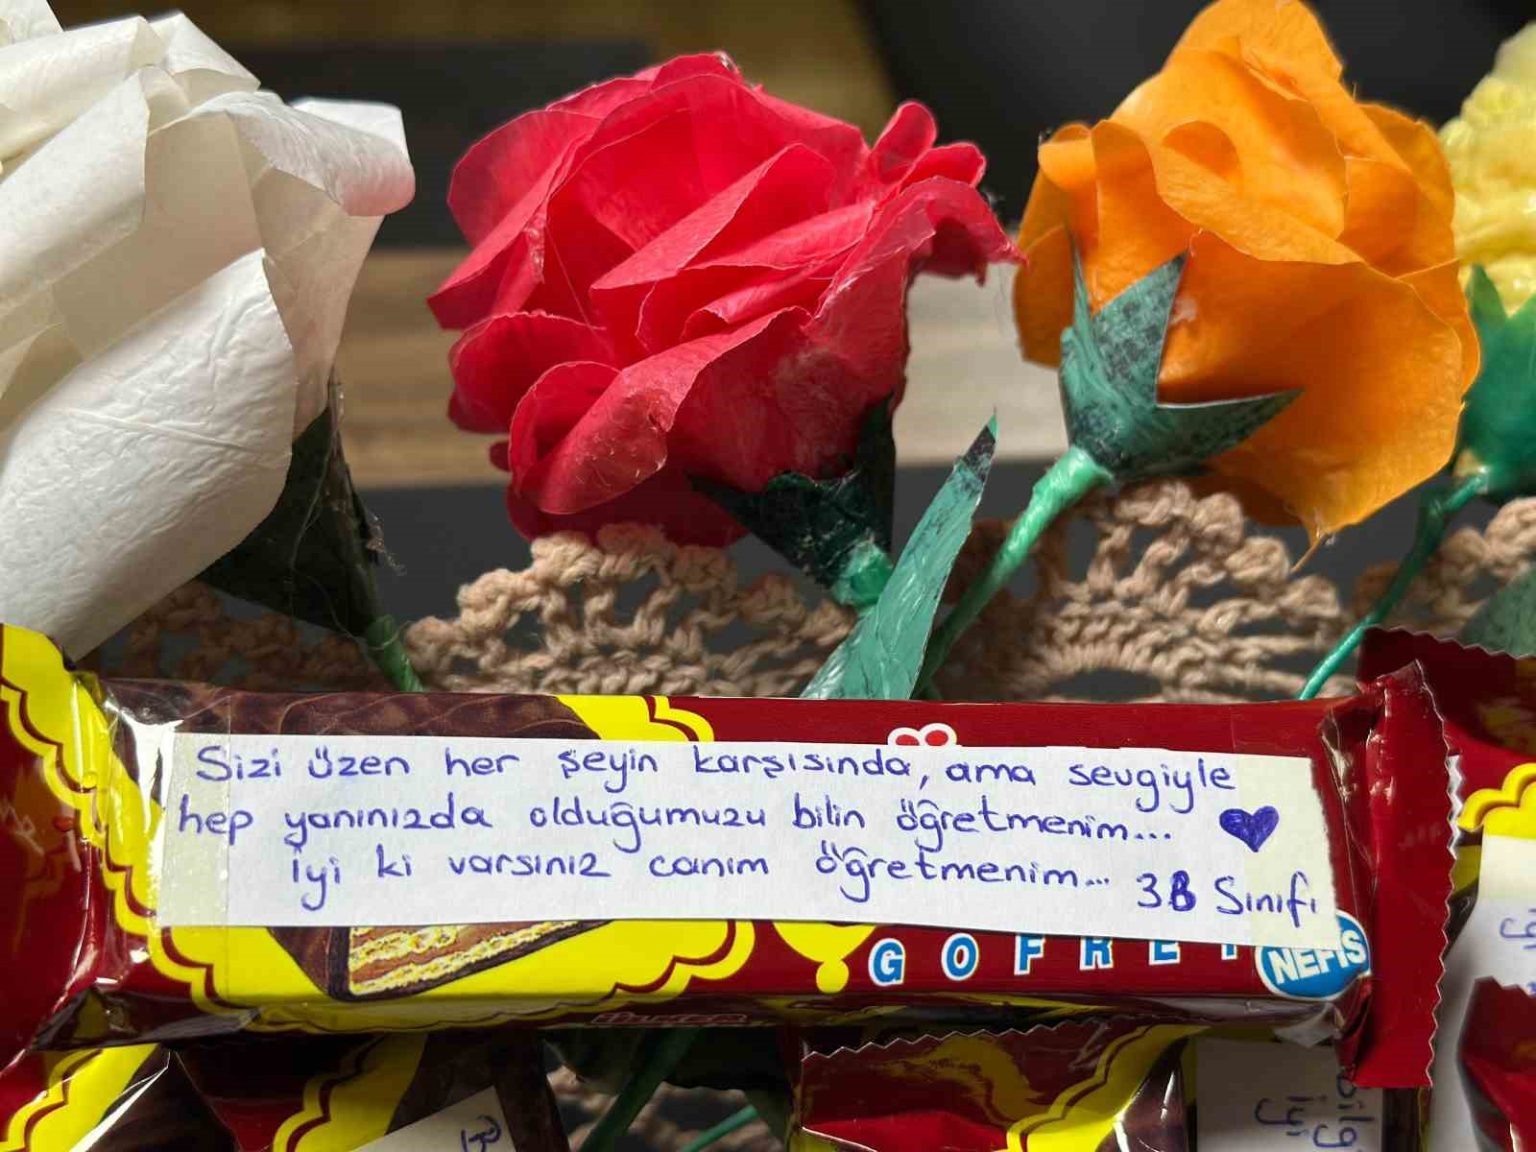 Sizi üzen her şeyin karşısında, ama sevgiyle
hep yanınızda olduğumuzu bilin öğretmenim...
İyi ki varsınız canım öğretmenim... 3B Sınıfı
GOFRET
NEFİS